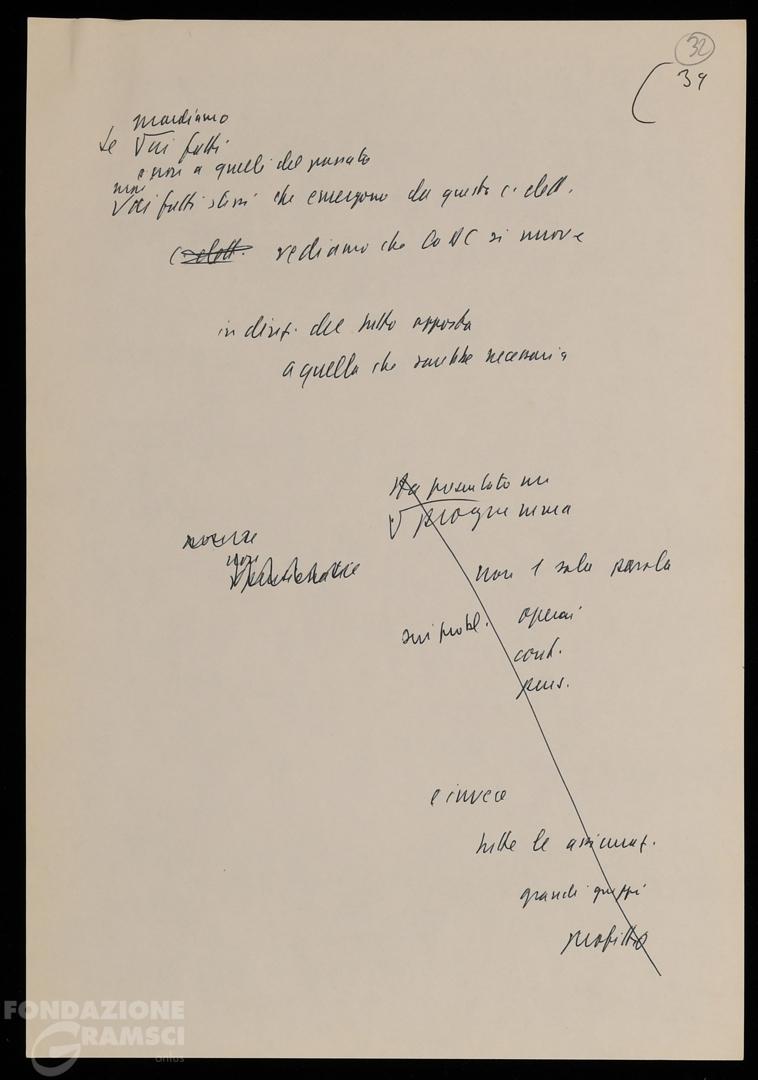 32
34
guardiamo
se ai fatti
e non a quelli del passato
ma
ai fatti stessi che emergono da questa c. elett.
c. elett. vediamo che la DC si muove
in direz. del tutto opposta
a quella che sarebbe necessaria
Ha presentato un
programma
non
non 1 sola parola
sui probl. operai
cont.
pens.
e invece
tutte le assicuraz.
grandi gruppi
profitto
FONDAZIONE
GRAMSCI
onlus